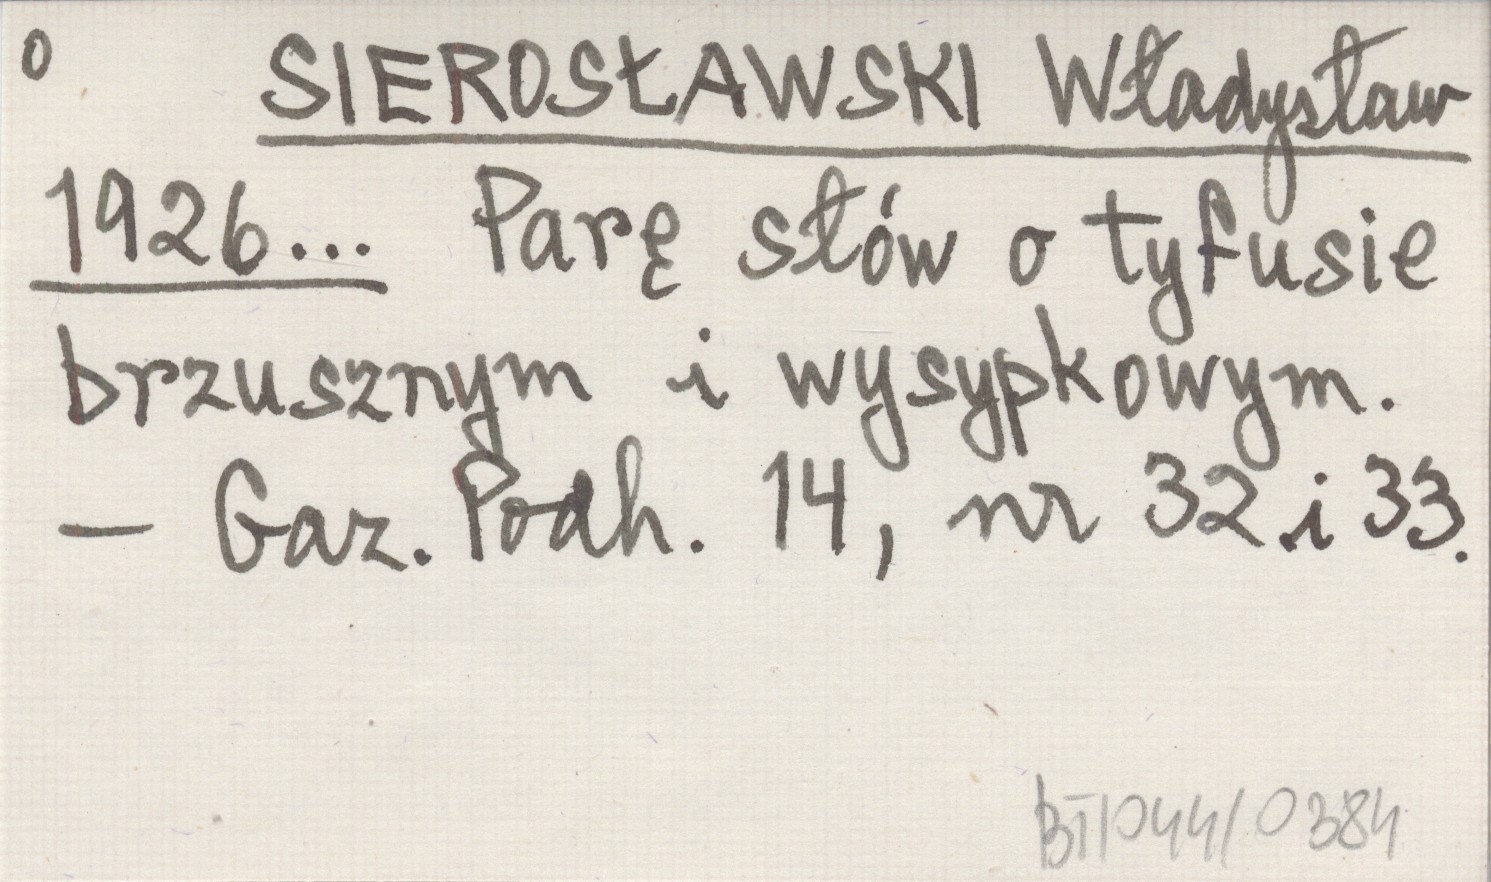 0 SIEROSŁAWSKI Władysław
1926... Parę słów o tyfusie
brzusznym i wysypkowym.
— Gaz. Podh. 14, nr 32 i 33.
BT/044/0384